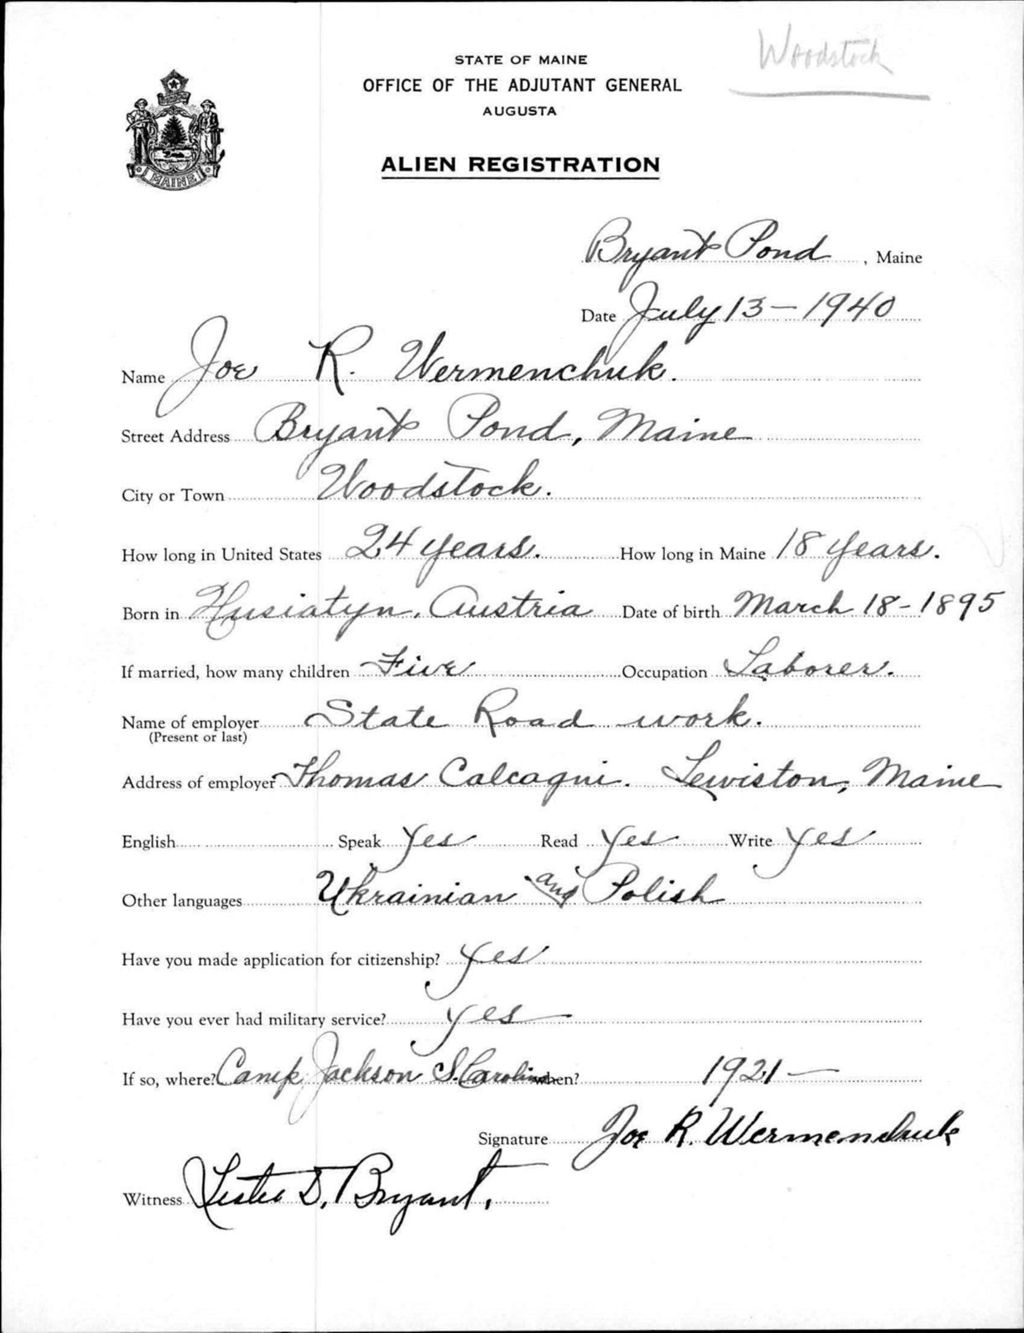 Woodstock
STATE OF MAINE
OFFICE OF THE ADJUTANT GENERAL
AUGUSTA
ALIEN REGISTRATION
MAINE
Bryant Pond, Maine
Date July 13-1940
Name Joe R. Wermenchuk.
Street Address Bryant Pond, Maine
City or Town Woodstock.
How long in United States 24 years. How long in Maine 18 years.
Born in Husiatyn, Austria Date of birth March 18-1895
If married, how many children Five Occupation Laborer.
Name of employer State Road work.
(Present or last)
Address of employer Thomas Calcagni. Lewiston, Maine
English Speak Yes Read Yes Write Yes
Other languages Ukrainian and Polish
Have you made application for citizenship? Yes
Have you ever had military service? Yes
If so, where? Camp Jackson S. Carolina when? 1921-
Signature Joe R. Wermenchuk
Witness Lester D. Bryant.